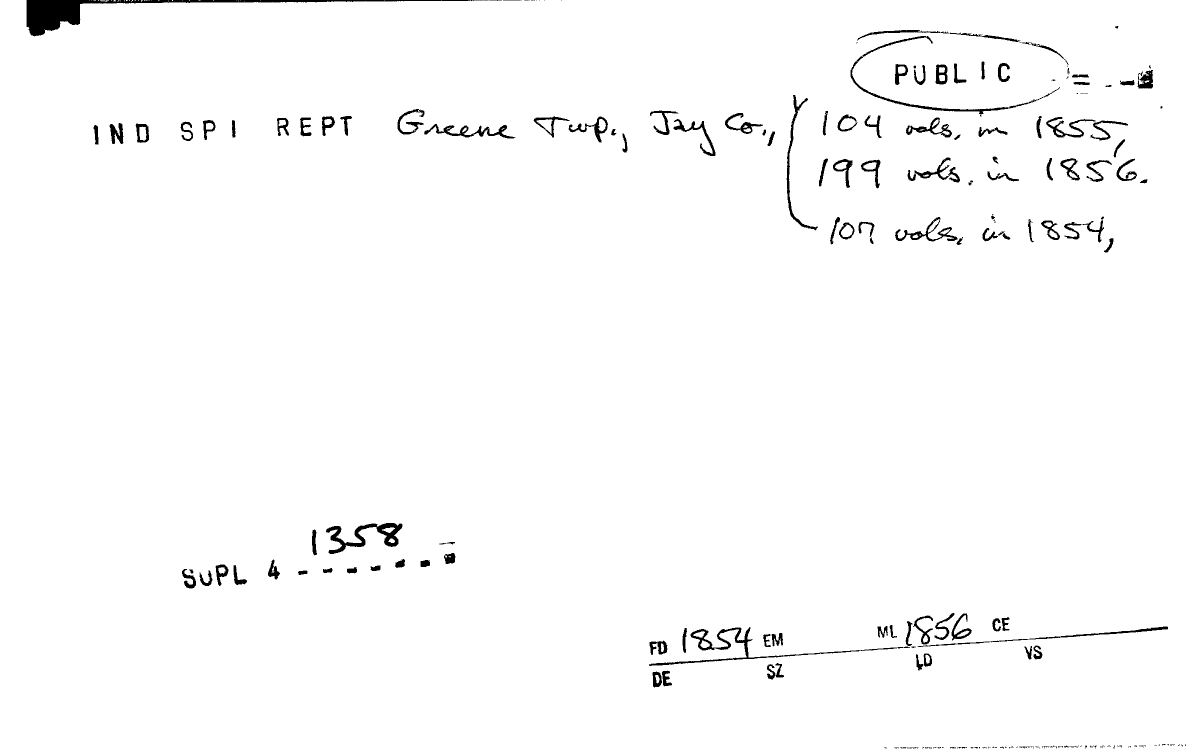 PUBLIC
IND SPI REPT Greene Twp., Jay Co., 104 vols. in 1855,
199 vols. in 1856.
107 vols. in 1854,
1358
SUPL 4
FD 1854 EM ML 1856 CE
DE SZ LD VS